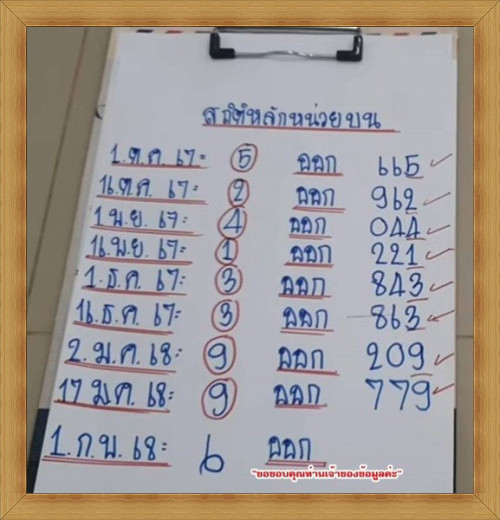 สถิติหลักหน่วยบน
1.ต.ค. 67= 5 ออก 665
16.ต.ค. 67= 2 ออก 962
1 พ.ย. 67= 4 ออก 044
16.พ.ย. 67= 1 ออก 221
1.ธ.ค. 67= 3 ออก 843
16.ธ.ค. 67= 3 ออก 863
2.ม.ค. 68= 9 ออก 209
17 ม.ค. 68= 9 ออก 779
1.ก.พ. 68= 6 ออก
"ขอขอบคุณท่านเจ้าของข้อมูลค่ะ"